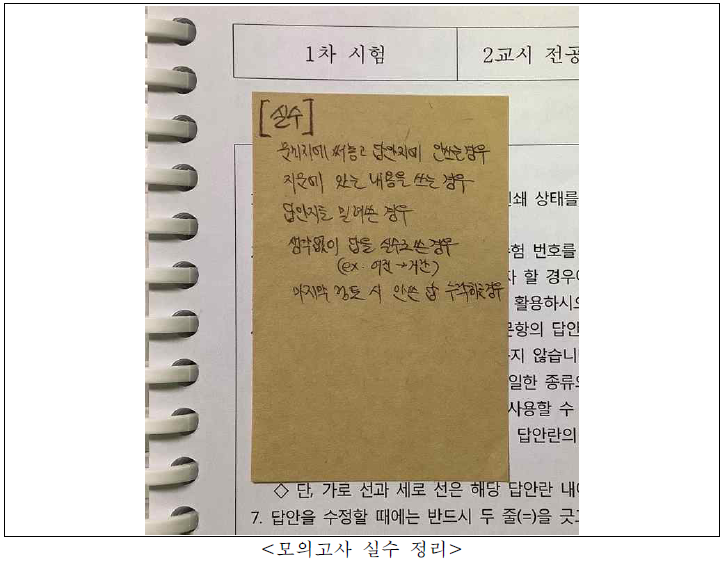 1차 시험
2교시 전공
[실수]
문제지에 써놓고 답안지에 안쓰는 경우
지문에 있는 내용을 쓰는 경우
답안지를 밀려쓴 경우
생각없이 답을 실수로 쓴 경우
(ex. →
마지막 검토 시 안쓴 답 누락하는 경우
인쇄 상태를
험 번호를
자 할 경우에
활용하시오
문항의 답안
지 않습니
일한 종류의
사용할 수
답안란의
◇ 단, 가로 선과 세로 선은 해당 답안란 내에
7. 답안을 수정할 때에는 반드시 두 줄(=)을 긋고
<모의고사 실수 정리>